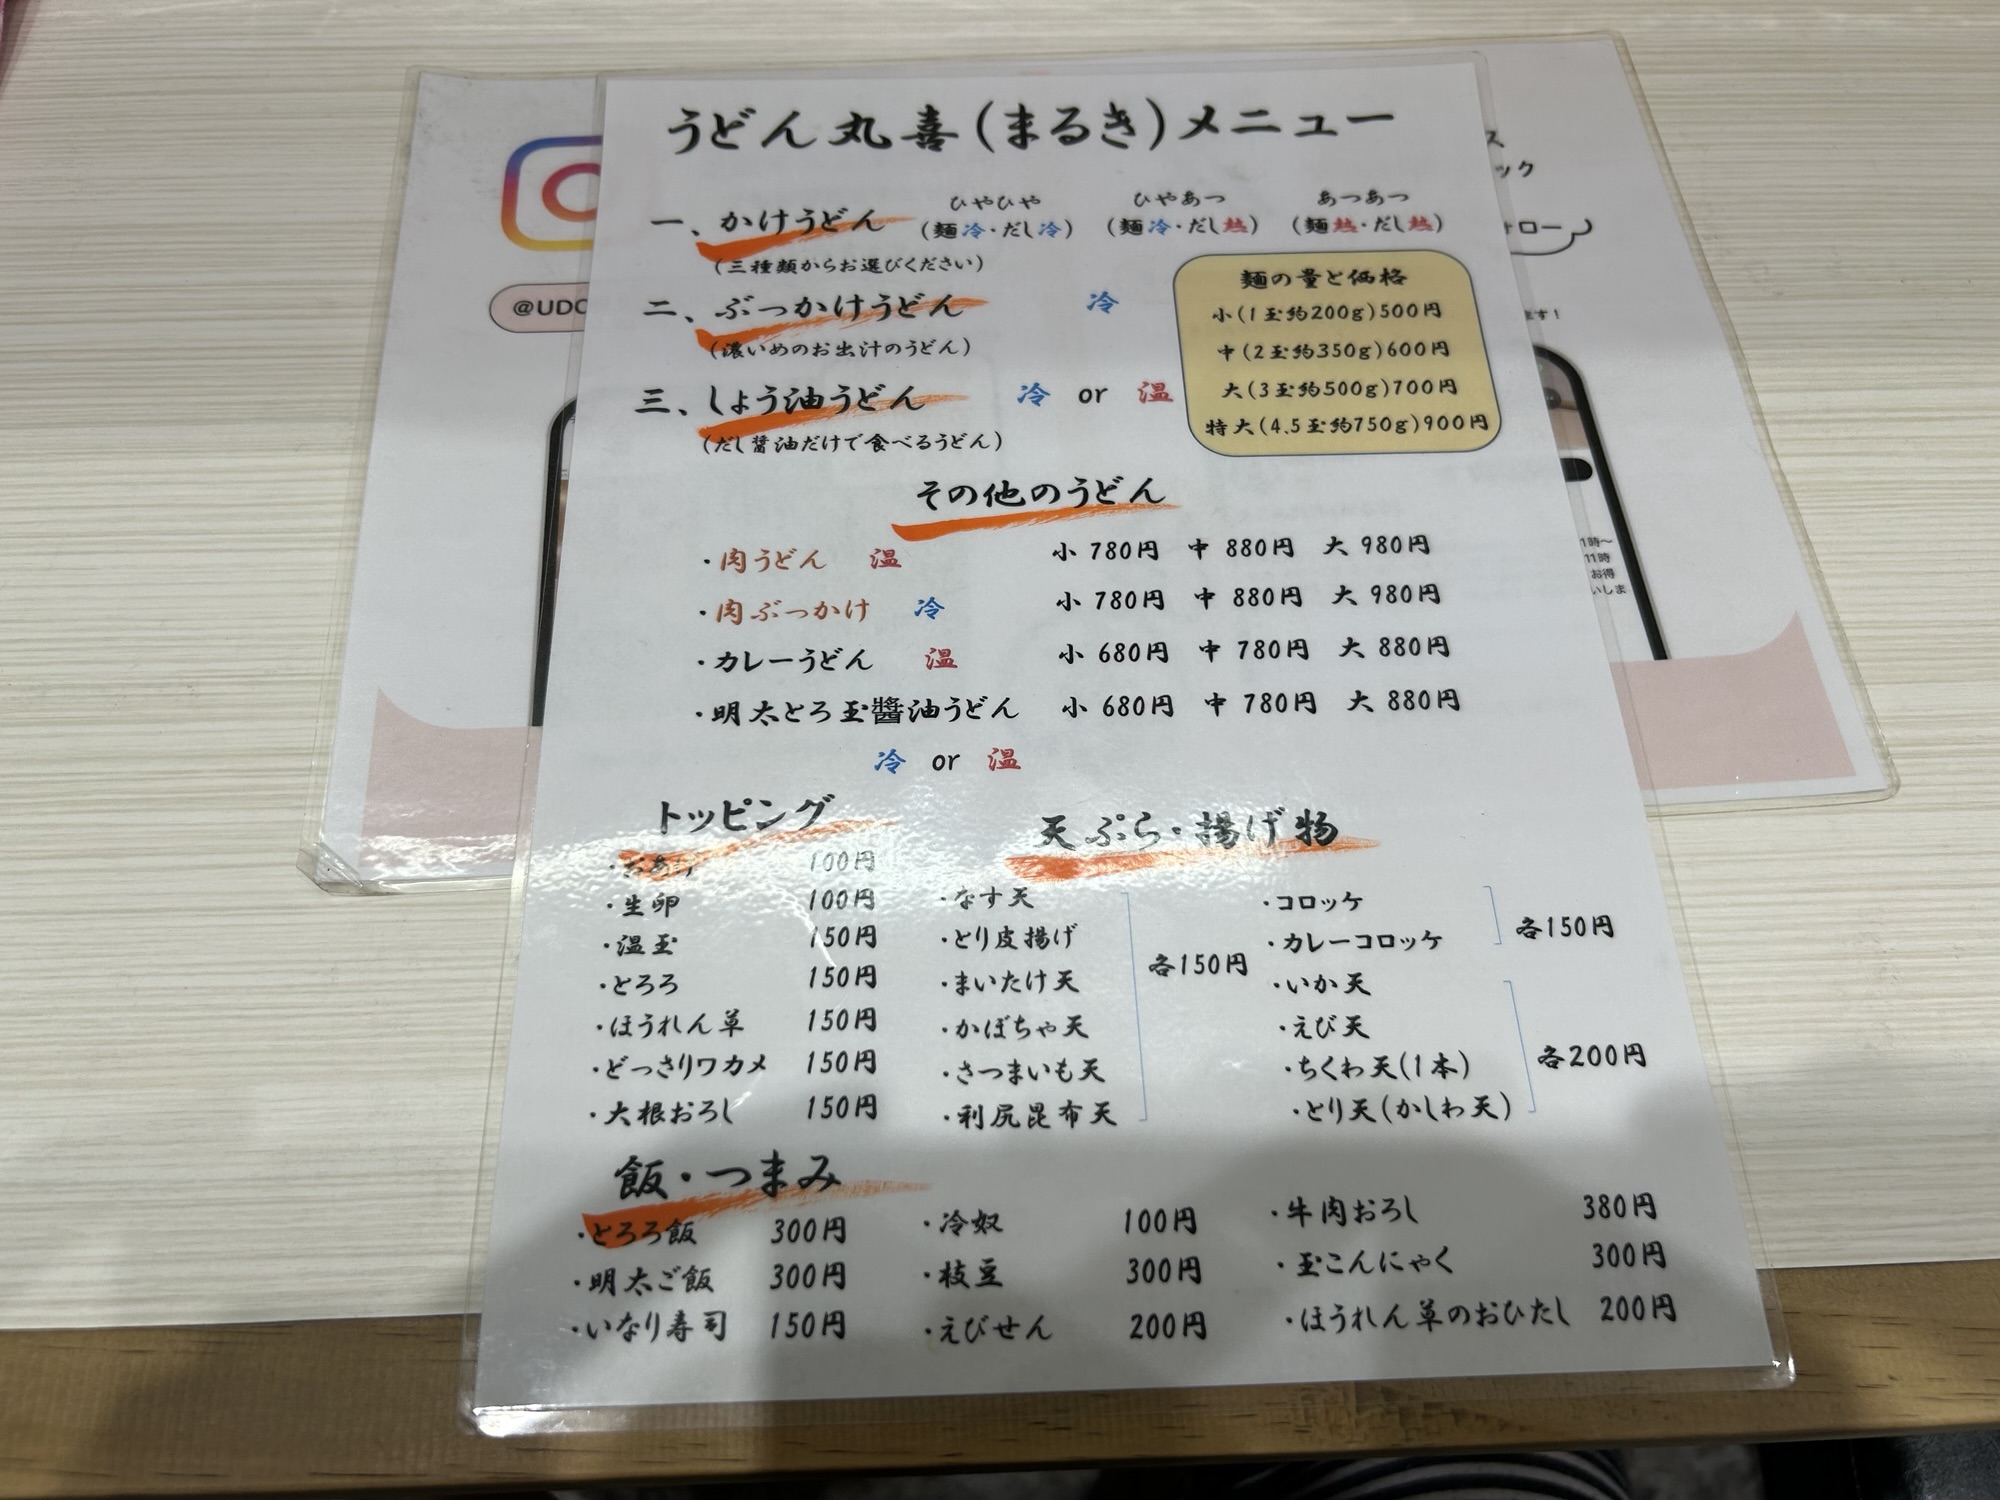 うどん丸喜(まるき)メニュー
ひやひや ひやあつ あつあつ
一、かけうどん (麺冷・だし冷) (麺冷・だし熱) (麺熱・だし熱)
(三種類からお選びください)
二、ぶっかけうどん 冷
(濃いめのお出汁のうどん)
三、しょう油うどん 冷 or 温
(だし醤油だけで食べるうどん)
麺の量と価格
小(1玉約200g)500円
中(2玉約350g)600円
大(3玉約500g)700円
特大(4.5玉約750g)900円
その他のうどん
・肉うどん 温 小 780円 中 880円 大 980円
・肉ぶっかけ 冷 小 780円 中 880円 大 980円
・カレーうどん 温 小 680円 中 780円 大 880円
・明太とろ玉醬油うどん 小 680円 中 780円 大 880円
冷 or 温
トッピング
・おあげ 100円
・生卵 100円
・温玉 150円
・とろろ 150円
・ほうれん草 150円
・どっさりワカメ 150円
・大根おろし 150円
天ぷら・揚げ物
・なす天
・とり皮揚げ
・まいたけ天
・かぼちゃ天
・さつまいも天
・利尻昆布天
各150円
・コロッケ
・カレーコロッケ
各150円
・いか天
・えび天
・ちくわ天(1本)
・とり天(かしわ天)
各200円
飯・つまみ
・とろろ飯 300円
・明太ご飯 300円
・いなり寿司 150円
・冷奴 100円
・枝豆 300円
・えびせん 200円
・牛肉おろし 380円
・玉こんにゃく 300円
・ほうれん草のおひたし 200円
@UDO
ス
ック
ォロー
ます!
1時〜
11時
お得
いしま